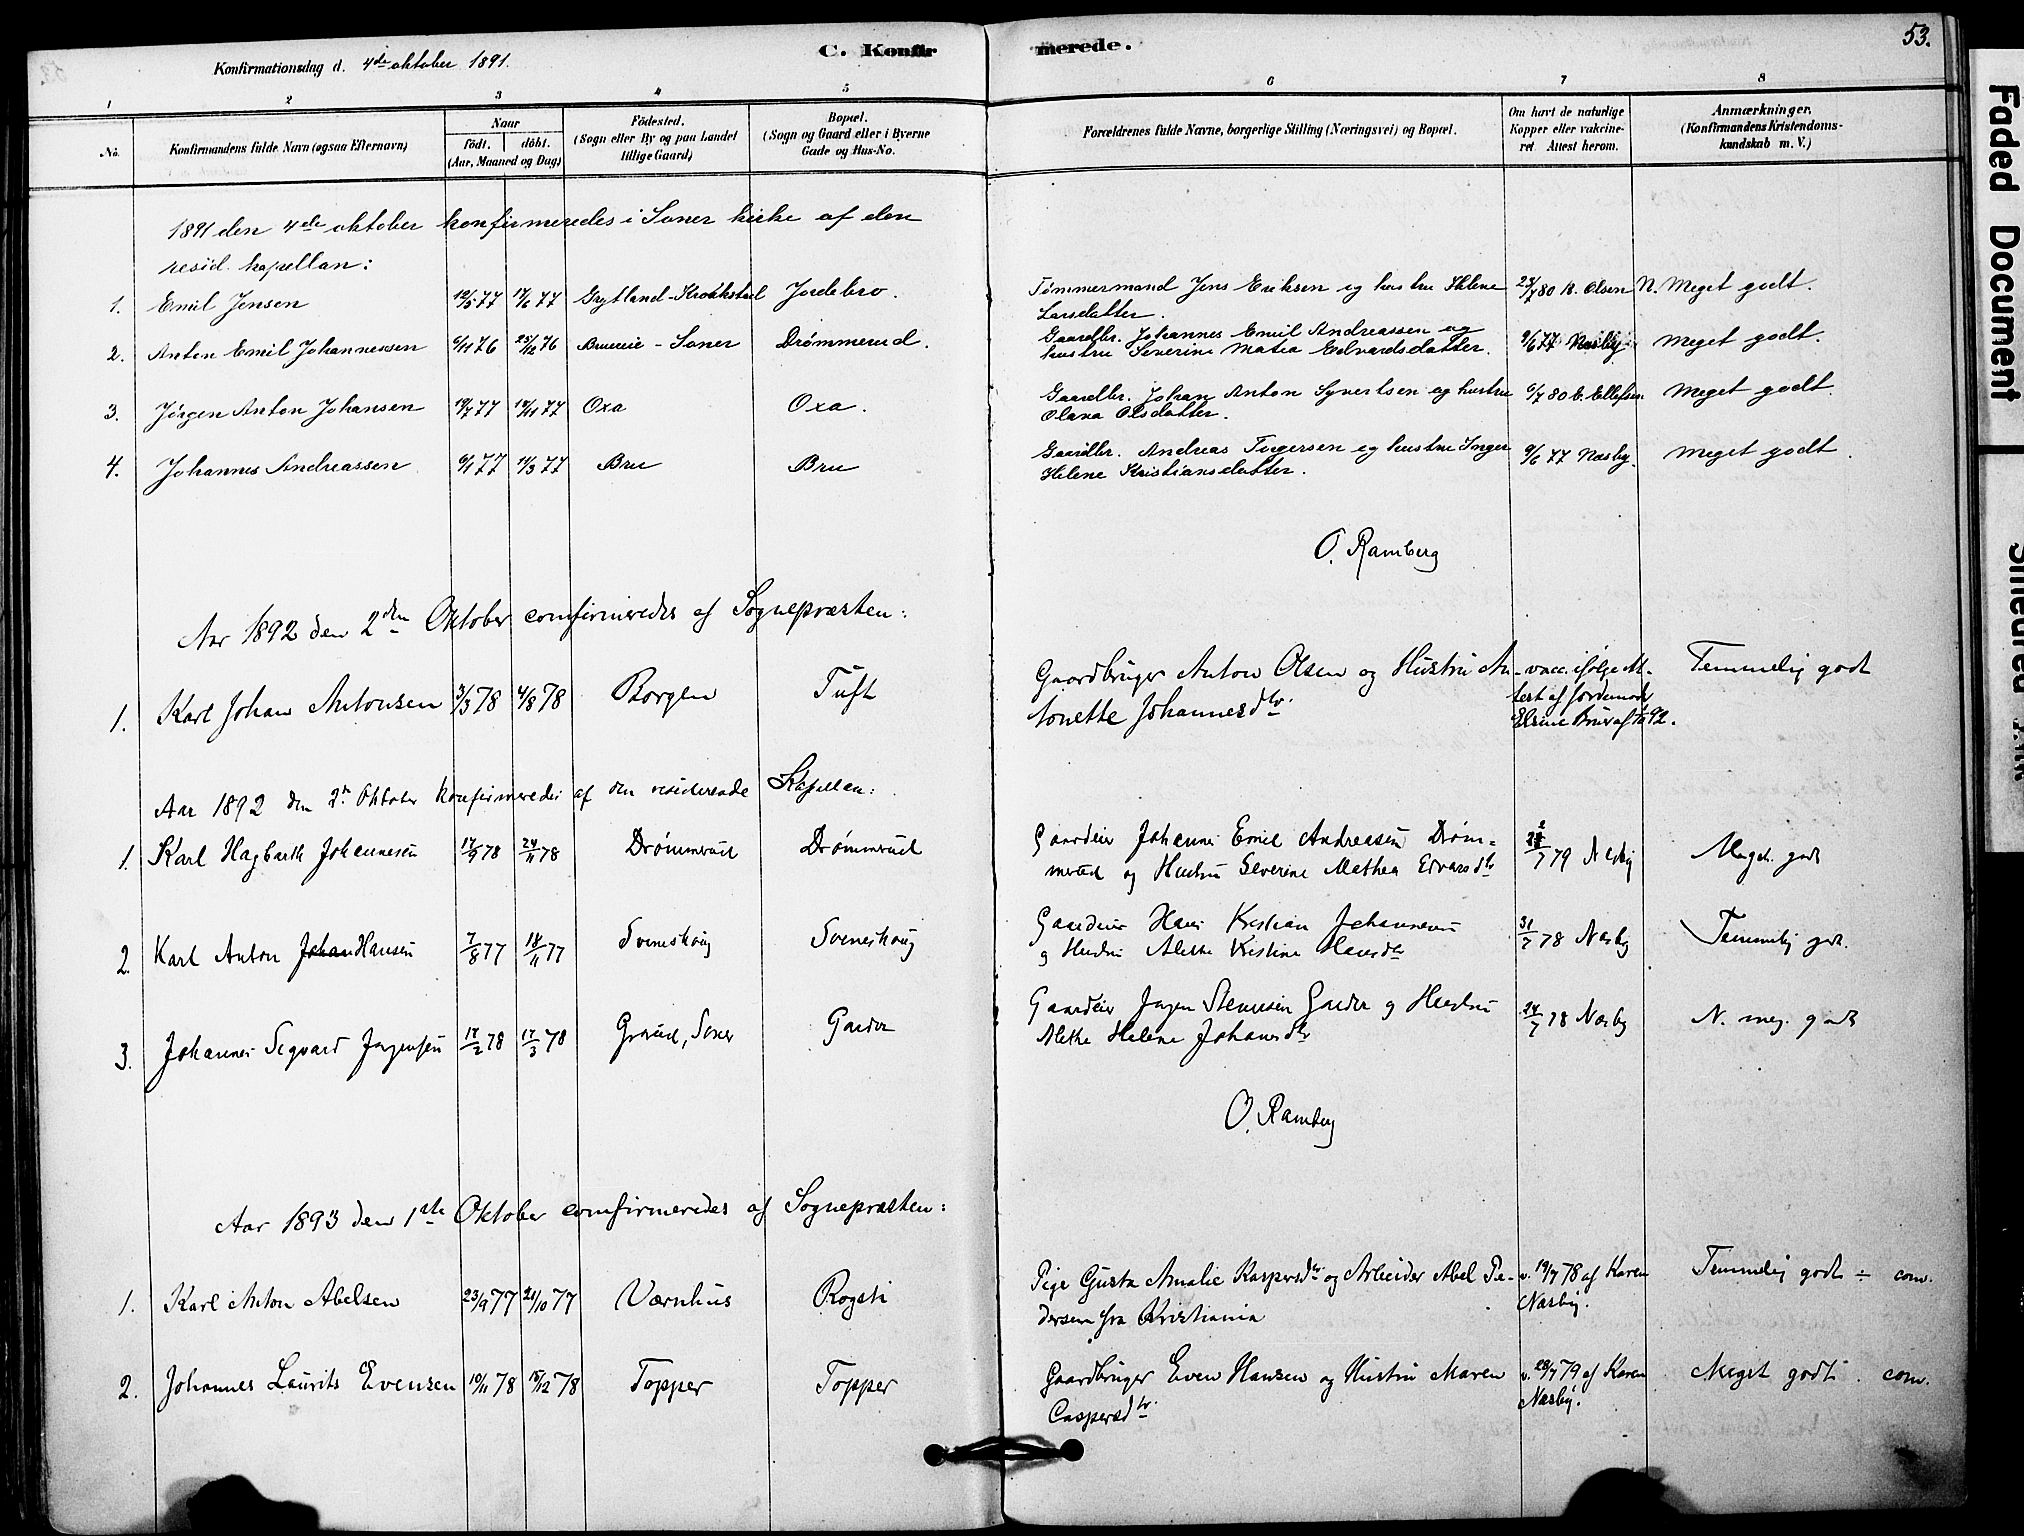 53.
Konfirmationsdag d. 4de oktober 1891.
C. Konfirmerede.
1 2 3 4 5 6 7 8
No. Konfirmandens fulde Navn (ogsaa Efternavn)
Naar født. døbt. (Aar, Maaned og Dag)
Fødested. (Sogn eller By og paa Landet tillige Gaard)
Bopæl. (Sogn og Gaard eller i Byerne Gade og Hus-No.
Forældrenes fulde Navne, borgerlige Stilling (Næringsvei) og Bopæl.
Om havt de naturlige Kopper eller vakcineret. Attest herom.
Anmærkninger. (Konfirmandens Kristendomskundskab m. V.)
1891 den 4de oktober konfirmeredes i Soner kirke af den
resid. kapellan:
1. Emil Jensen 77 77 Grytland - Krokkstad Jordebro. Tømmermand Jens Eriksen og hustru Helene 80 Olsen N. Meget godt.
Larsdatter.
2. Anton Emil Johannessen 6/11 76 25/12 76 Brueeie - Soner Drømmerud. Gaardbr. Johannes Emil Andreassen og 9/6 77 Næsby Meget godt.
hustru Severine Matea Edvardsdatter.
3. Jørgen Anton Johansen 19/7 77 18/11 77 Oxa Oxa. Gaardbr. Johan Anton Syvertsen og hustru 6/7 80 E. Ellefsen Meget godt.
Olava Olsdatter.
4. Johannes Andreassen 6/1 77 11/3 77 Bru Bru Gaardbr. Andreas Torgersen og hustru Inger 9/6 77 Næsby. Meget godt.
Helene Kristiansdatter.
O. Ramberg
Aar 1892 den 2den Oktober comfirmeredes af Sognepræsten:
1. Karl Johan Antonsen 3/3 78 4/8 78 Borgen Tuft Gaardbruger Anton Olsen og Hustru An- vacc. ifølge At- Temmelig godt
tonette Johannesdtr. test af Jordemoder
Elsine Bru af 92.
Aar 1892 den 2n Oktober konfirmeredes af den residerende Kapellan:
1. Karl Hagbarth Johannesen 17/9 78 24/11 78 Drømmerud Drømmerud Gaardeier Johannes Emil Andreasen Drøm- 79 Næsby Meget godt
merud og Hustru Severine Mathea Edvardsdtr
2. Karl Anton Johan Hansen 7/8 77 18/11 77 Svineskoug Svineskoug Gaardeier Hans Kristian Johannesen 31/7 78 Næsby Temmelig godt.
og Hustru Alette Kristine Hansdtr
3. Johannes Sigvard Jørgensen 17/2 78 17/3 78 Grøstad, Soner Garder Gaardeier Jørgen Stenersen Garder og Hustru 24/7 78 Næsby N. meg. godt
Alethe Helene Johansdtr
O. Ramberg
Aar 1893 den 1ste Oktober comfirmeredes af Sognepræsten:
1. Karl Anton Abelsen 23/9 77 21/10 77 Værnhus Rogsti Pige Gusta Amalie Kaspersdtr. og Arbeider Abel Pe- v. 19/7 78 af Karen Temmelig godt ÷ com.
dersen fra Kristiania Næsby.
2. Johannes Laurits Evensen 10/11 78 15/12 78 Topper Topper Gaardbruger Even Hansen og Hustru Maren v. 28/7 79 af Karen Meget godt. com.
Caspersdtr. Næsby.
Faded Document